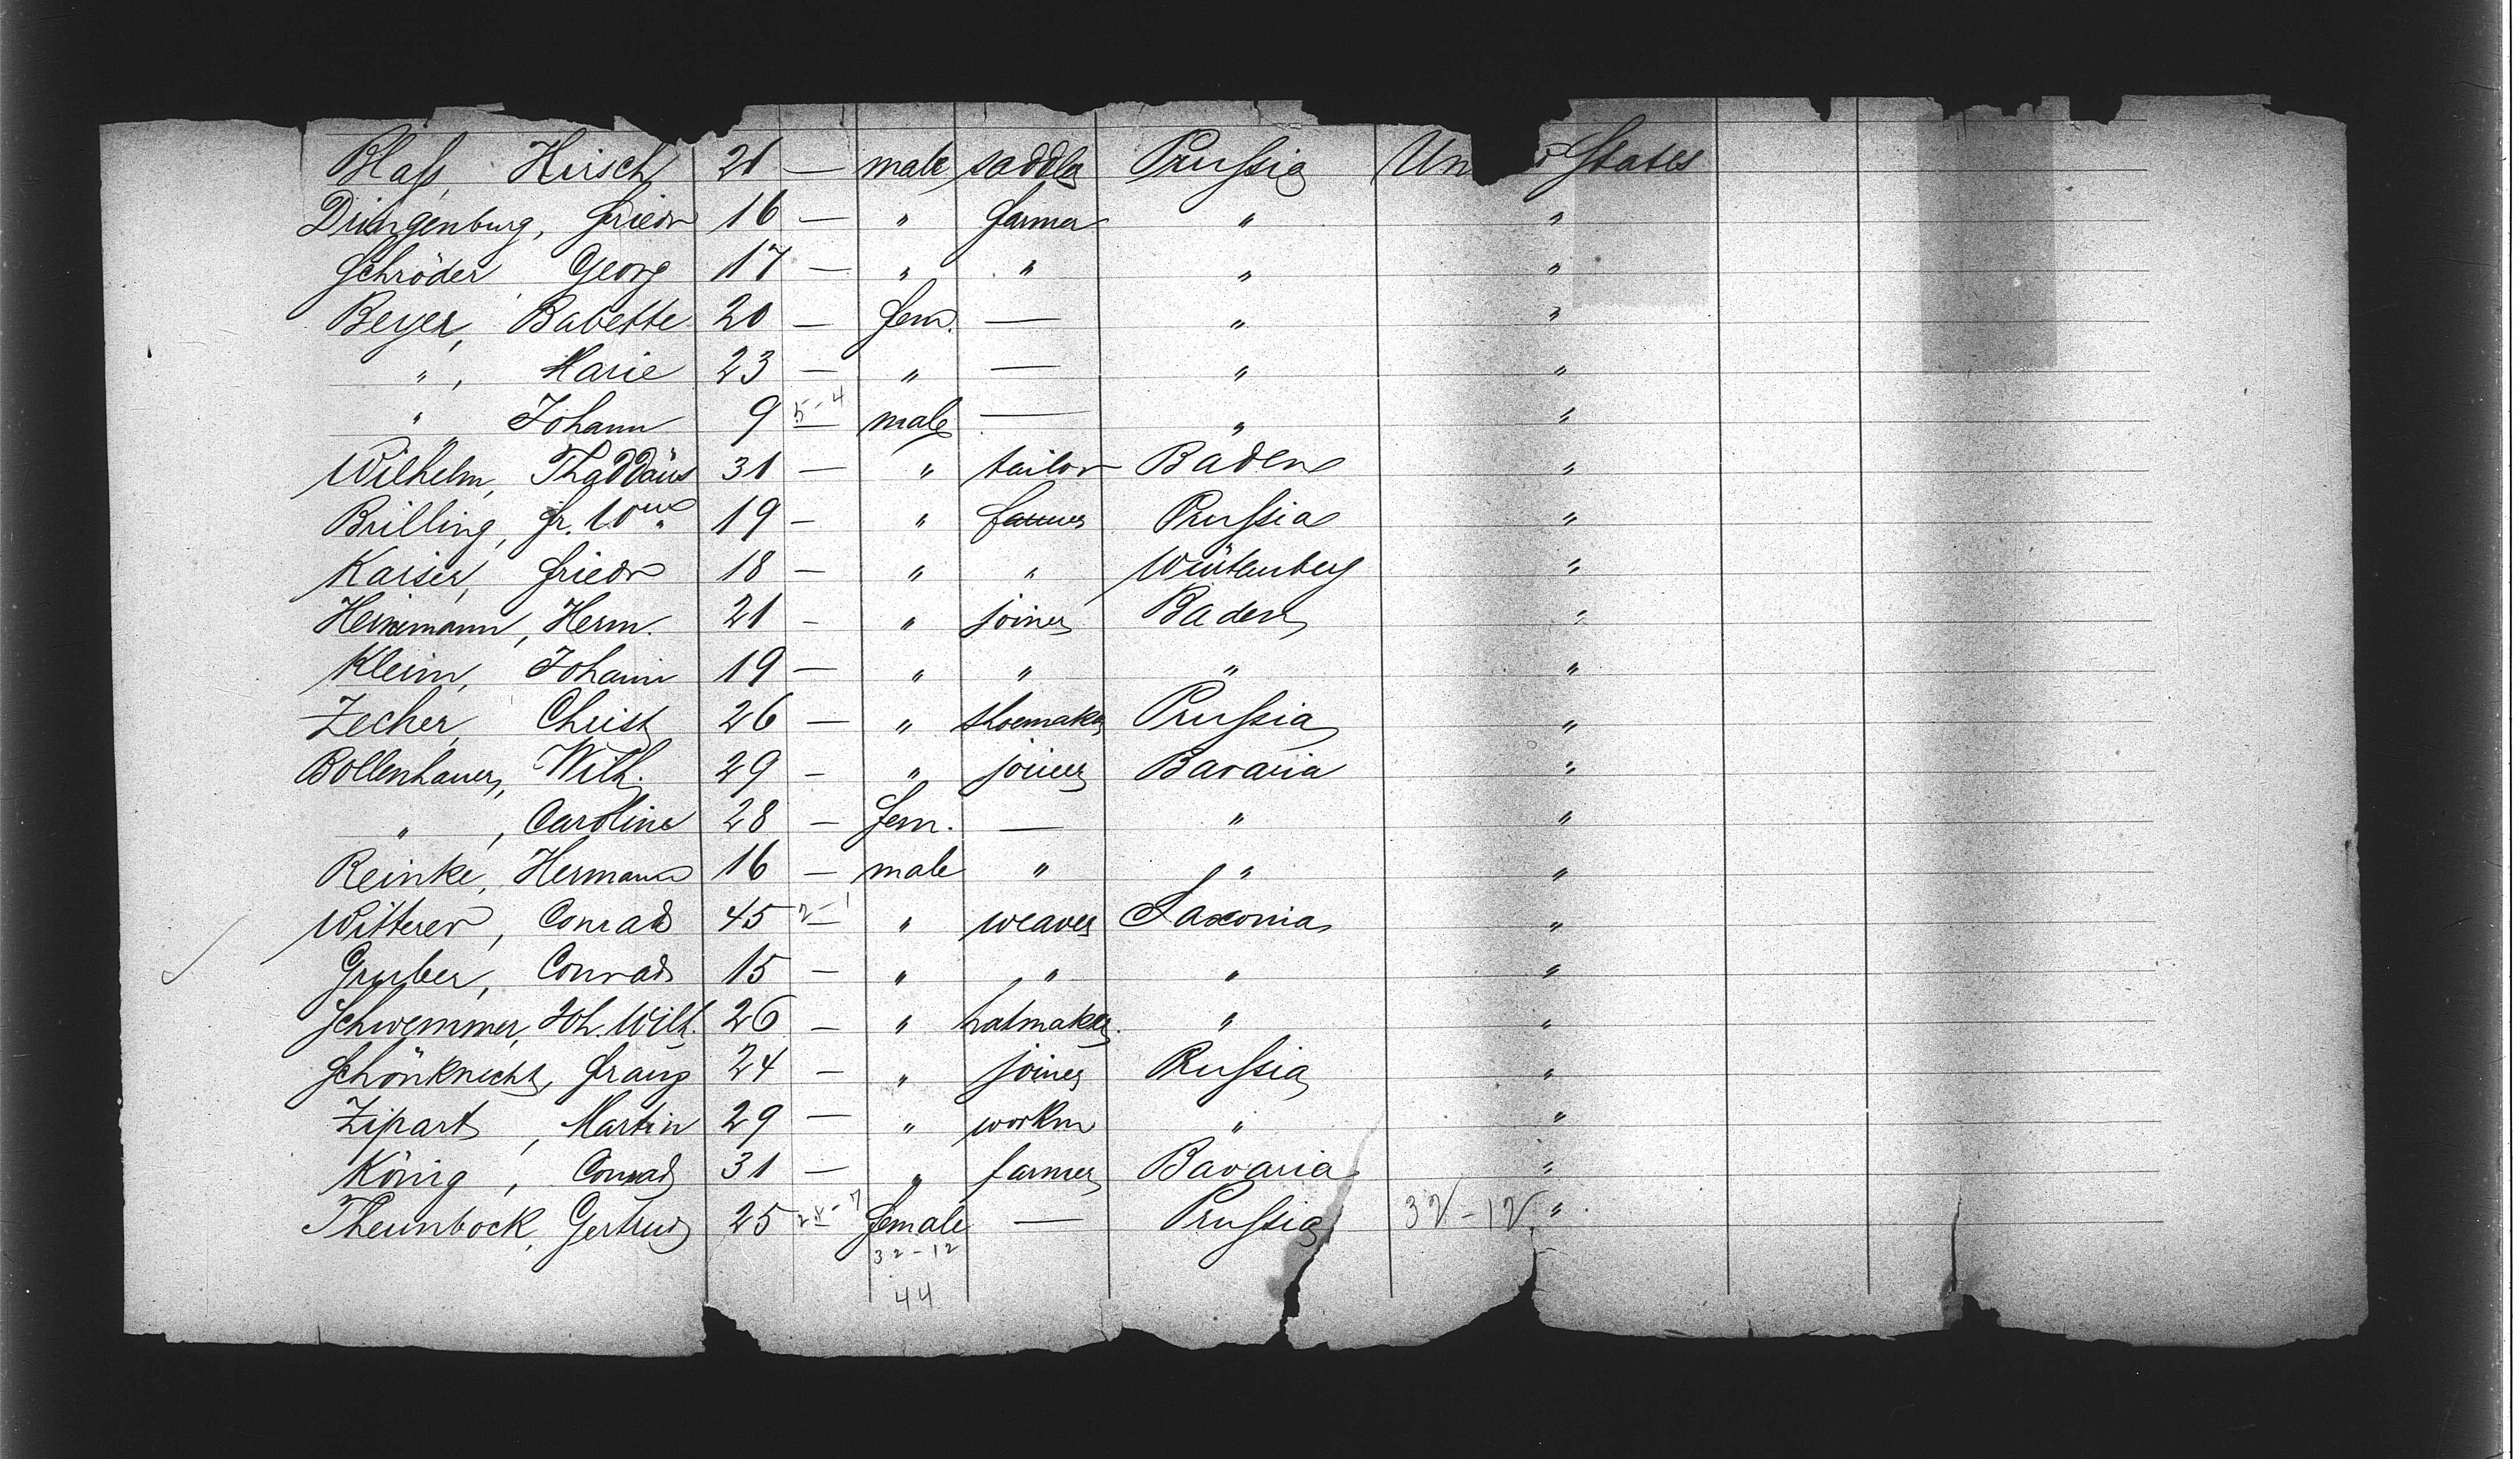 Blaß, Hirsch 21 — male saddler Prussia Un d States
Dringenburg, Friedr 16 — " farmer " "
Schröder, Georg 17 — " " " "
Beyer, Babette 20 — fem. — " "
", Marie 23 — " — " "
" Johann 9 5-4 — male — " "
Wilhelm, Thaddäus 31 — " tailor Baden "
Brilling, Fr. 19 — " farmer Prussia "
Kaiser, Friedr 18 — " " Würtemberg "
Heinemann, Herm. 21 — " joiner Baden "
Kleim, Johann 19 — " " " "
Zecher, Christ 26 — " shoemaker Prussia "
Bollenhauer, Wilh. 29 — " joiner Bavaria "
", Caroline 28 — fem. — " "
Reinke, Hermann 16 — male " " "
Witterer, Conrad 45 2-1 — " weaver Saxonia "
Gruber, Conrad 15 — " " " "
Schwemmer, Joh. Wilh. 26 — " hatmaker " "
Schönknecht, Franz 24 — " joiner Prussia "
Zipart, Martin 29 — " workm " "
König, Conrad 31 — " farmer Bavaria "
Theinbock, Gertrud 25 24-7 — female — Prussia 32-12 "
32-12
44